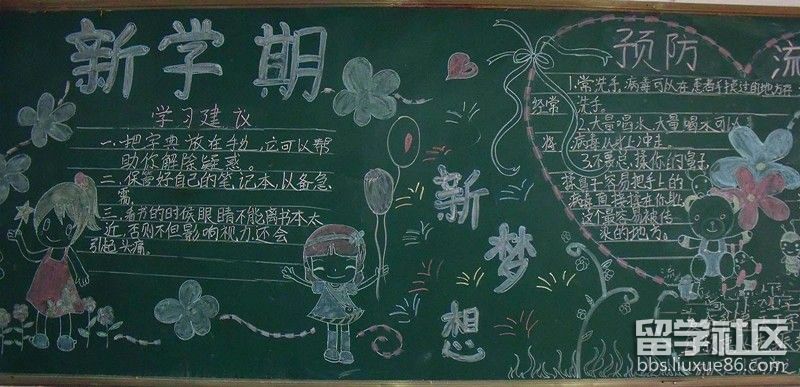 新学期
学习建议
一.把字典放在手边,它可以帮
助你解除疑惑。
二.保管好自己的笔记本,以备急
需。
三.看书的时候眼睛不能离书本太
近,否则不但影响视力,还会
引起头痛。
新
梦
想
预防 流
1.常洗手,病毒可以在患者手接过的地方在
经常 洗手。
2.大量喝水,大量喝水可以
将 病毒从 上冲走。
3.不要总揉你的鼻子,
揉鼻子容易把手上的
病毒直接揉在你
这个最容易被传
染的地方。
留学社区
bbs.liuxue86.com